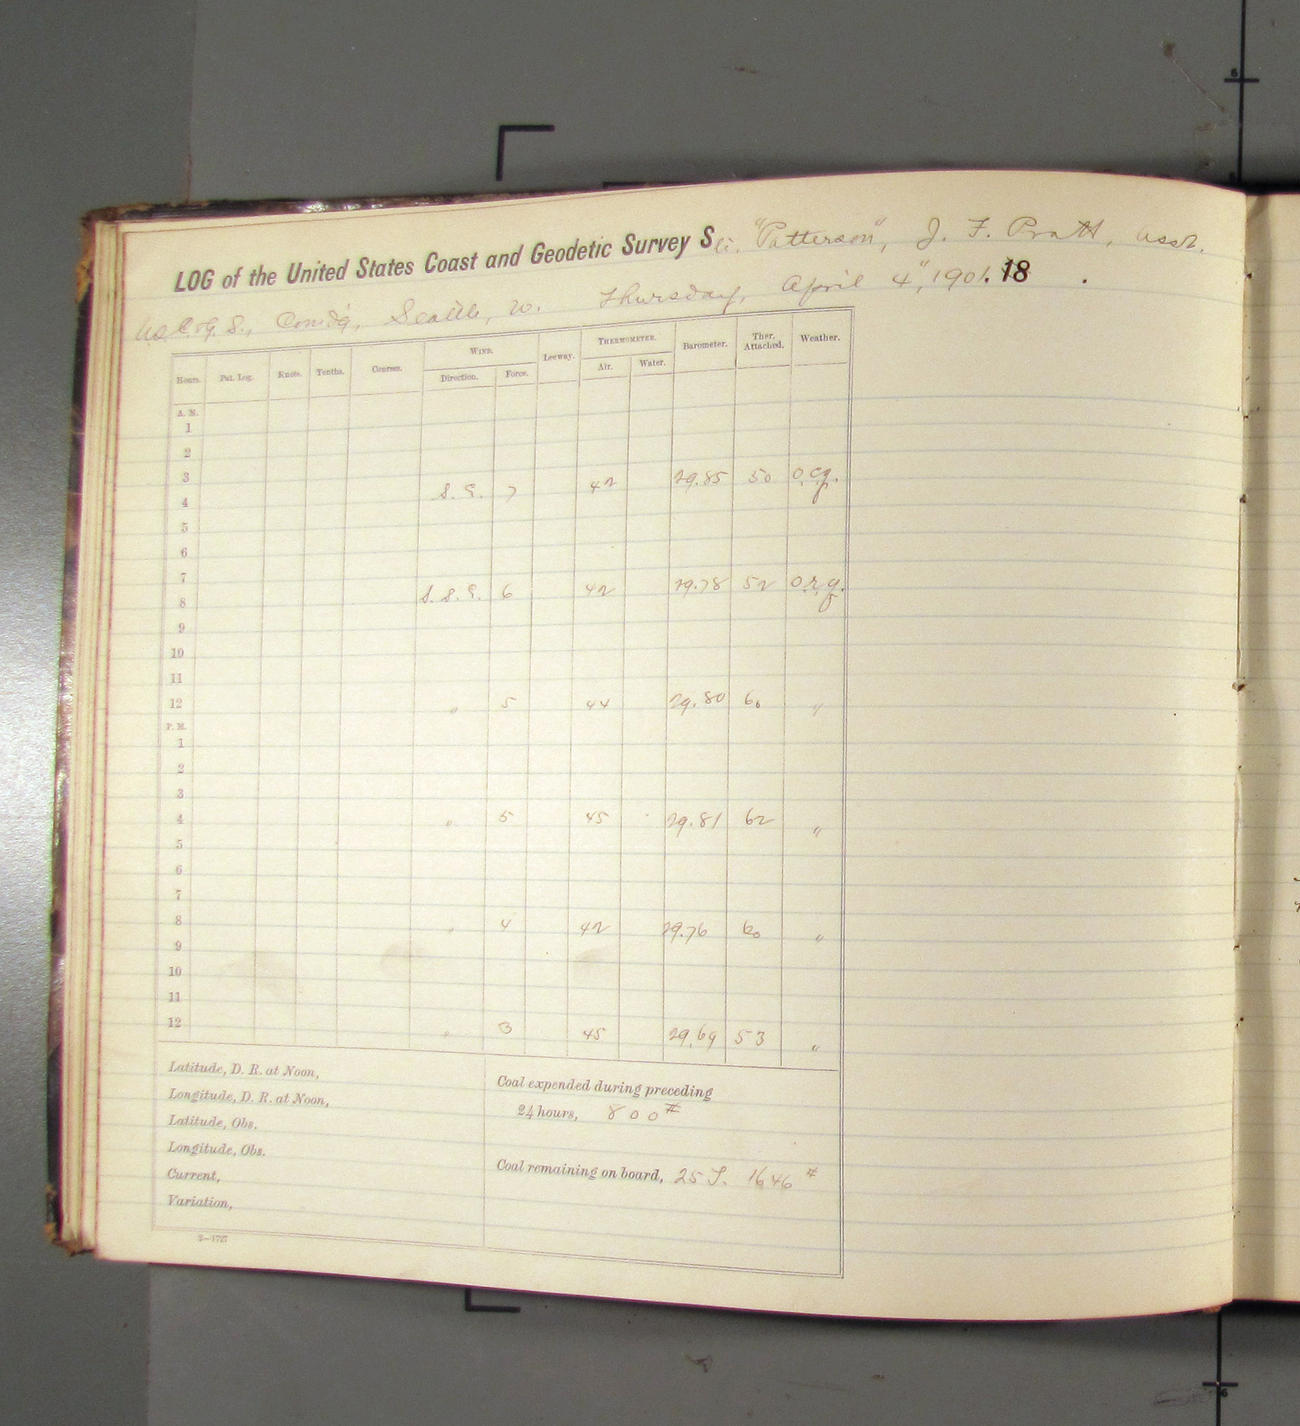 LOG of the United States Coast and Geodetic Survey Str. "Patterson", J. F. Pratt, Asst.
U.S.C. & G. S., Com'd'g, Seattle, W. Thursday, April 4", 1901. 18 .
Hours. Pat. Log. Knots. Tenths. Courses. WIND. Leeway. THERMOMETER. Barometer. Ther. Attached. Weather.
Direction. Force. Air. Water.
A. M.
1
2
3
4 S. E. 7 42 29.85 50 o.c.q.
5
6
7
8 S. S. E. 6 42 29.78 52 o.r.q.
9
10
11
12 " 5 44 29.80 60 "
P. M.
1
2
3
4 " 5 45 29.81 62 "
5
6
7
8 " 4 42 29.76 60 "
9
10
11
12 " 3 45 29.69 53 "
Latitude, D. R. at Noon,
Longitude, D. R. at Noon,
Latitude, Obs.
Longitude, Obs.
Current,
Variation,
Coal expended during preceding
24 hours, 800#
Coal remaining on board, 25 T. 1646 #
2—1727